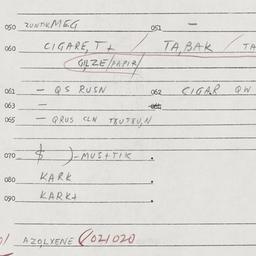 050 ZUNTKMEG 051 —
060 CIGARE, T+ / TA,BAK / TA
GILZE/PAPIR/
061 — QS RUSN 062 CIGAR QW
063 —
065 — QRUS CLN TXUTXU,N
070 $ )-MUS+TIK .
080 KARK .
090 KARK+ .
AZO,LXENE (021020